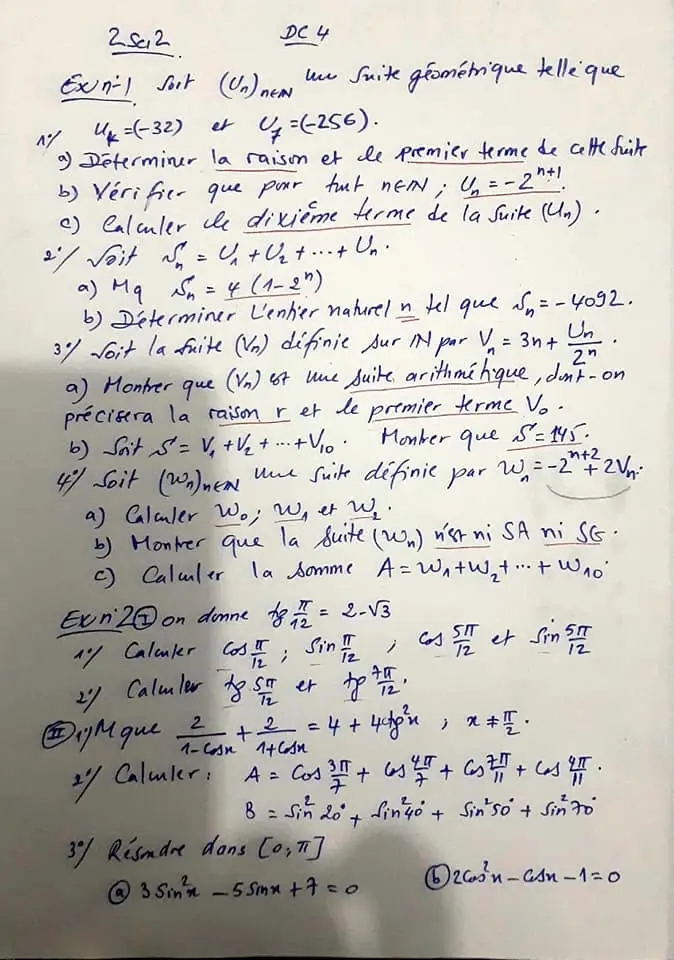 2Sc2 DC4
Ex n°1 Soit (Un)n∈IN une suite géométrique telle que
1°/ U4=(-32) et U7=(-256).
a) Déterminer la raison et le premier terme de cette suite
b) Vérifier que pour tout n∈IN ; Un = -2^(n+1).
c) Calculer le dixième terme de la suite (Un).
2°/ Soit Sn = U1+U2+...+Un.
a) Mq Sn = 4(1-2^n)
b) Déterminer l'entier naturel n tel que Sn = -4092.
3°/ Soit la suite (Vn) définie sur IN par Vn = 3n + Un/2^n.
a) Montrer que (Vn) est une suite arithmétique, dont-on
précisera la raison r et le premier terme V0.
b) Soit S' = V1+V2+...+V10. Montrer que S'=145.
4°/ Soit (Wn)n∈IN une suite définie par Wn = -2^(n+2) + 2Vn.
a) Calculer W0 ; W1 et W2.
b) Montrer que la suite (Wn) n'est ni SA ni SG.
c) Calculer la somme A = W1+W2+...+W10.
Ex n°2 I on donne tg π/12 = 2-√3
1°/ Calculer cos π/12 ; sin π/12 ; cos 5π/12 et sin 5π/12
2°/ Calculer tg 5π/12 et tg 7π/12.
II 1°/ M que 2/(1-cosx) + 2/(1+cosx) = 4 + 4cotg²x ; x ≠ π/2.
2°/ Calculer : A = cos 3π/7 + cos 4π/7 + cos 7π/11 + cos 4π/11.
B = sin²20° + sin²40° + sin²50° + sin²70°
3°/ Résoudre dans [0,π]
a 3sin²x - 5sinx + 7 = 0 b 2cos²x - cosx - 1 = 0